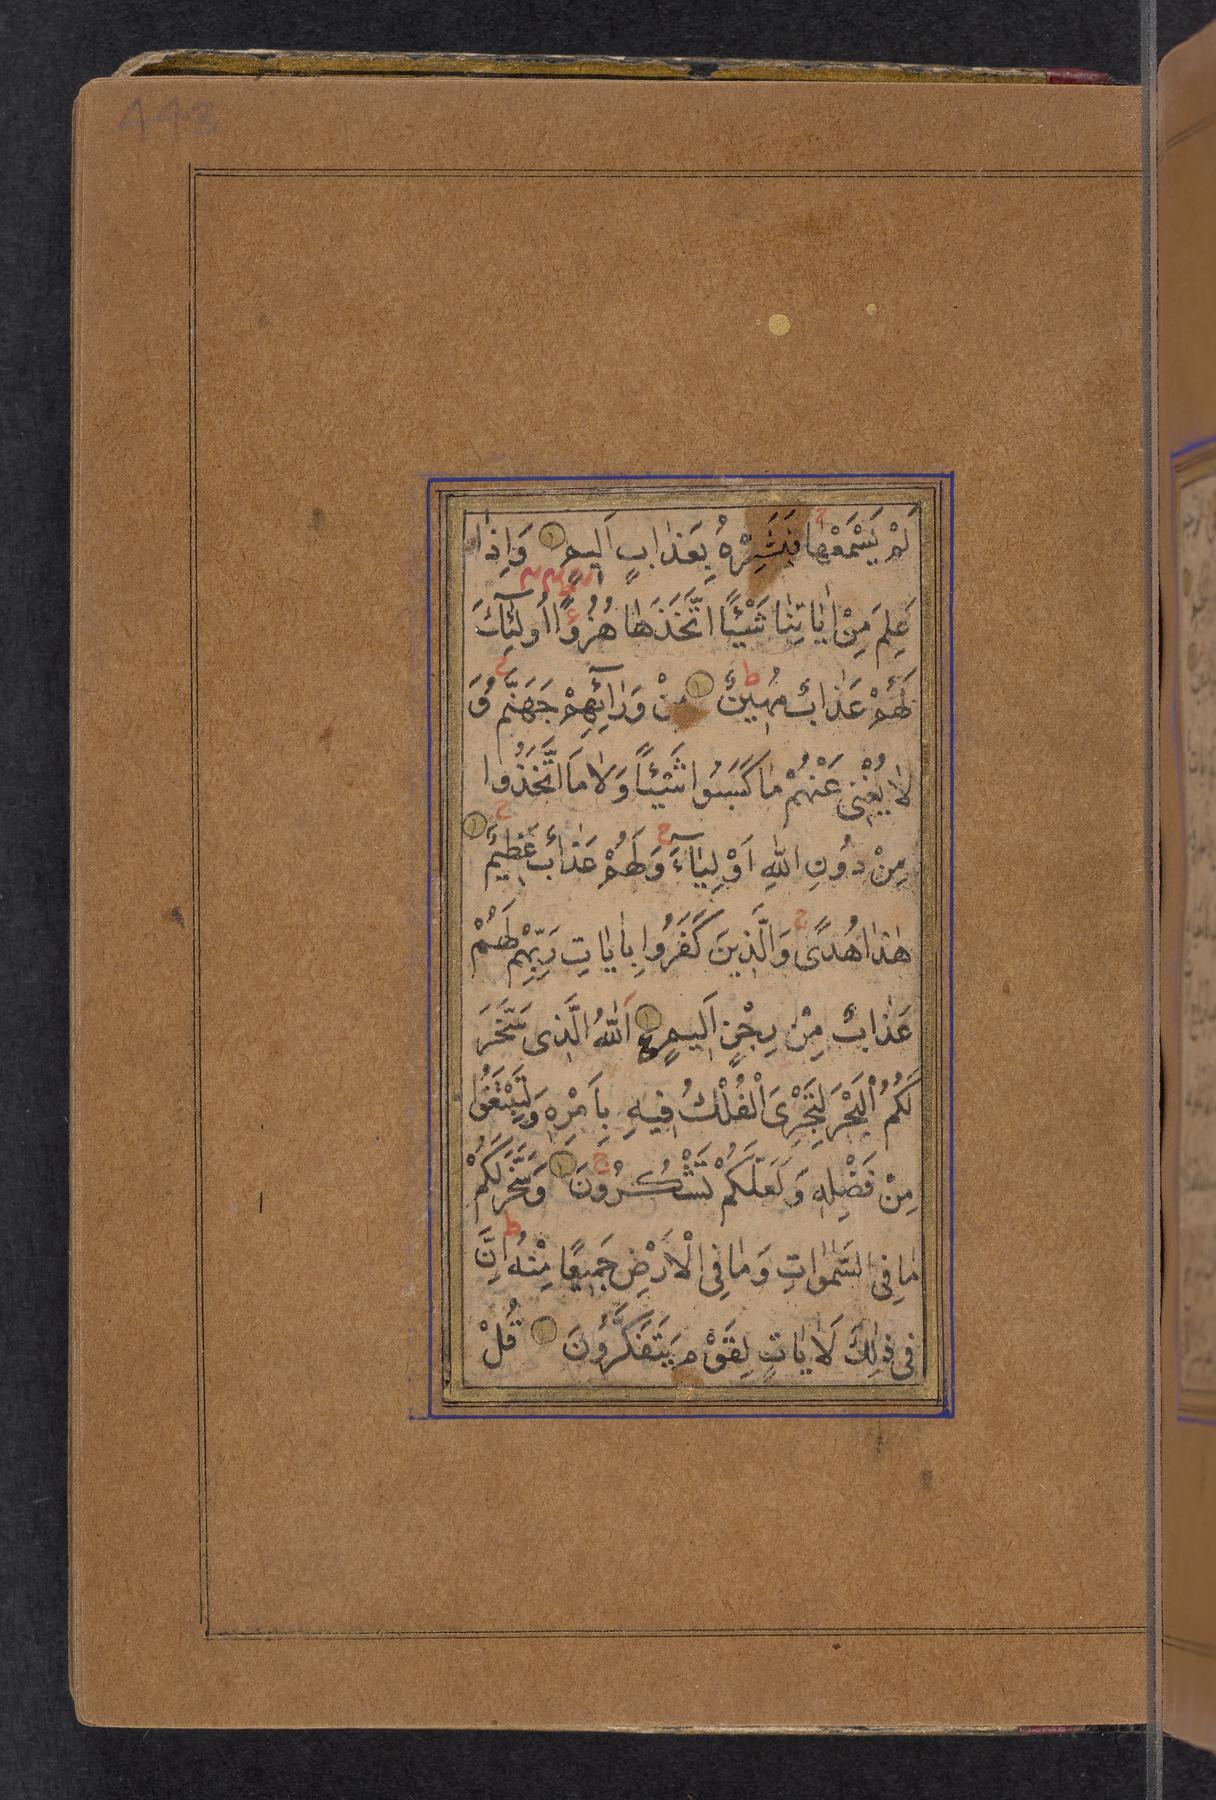 443
لَمْ يَسْمَعْهٰا فَبَشِّرْهُ بِعَذٰابٍ اَلِيمٍ وَاِذٰا
عَلِمَ مِنْ اٰيٰاتِنٰا شَيْئًا اتَّخَذَهٰا هُزُوًا اُولٰئِكَ
لَهُمْ عَذٰابٌ مُهِينٌ مِنْ وَرٰائِهِمْ جَهَنَّمُ وَ
لاٰ يُغْنِى عَنْهُمْ مٰا كَسَبُوا شَيْئًا وَلاٰ مَا اتَّخَذُوا
مِنْ دُونِ اللّٰهِ اَوْلِيٰآءَ وَلَهُمْ عَذٰابٌ عَظِيمٌ
هٰذٰا هُدًى وَالَّذِينَ كَفَرُوا بِاٰيٰاتِ رَبِّهِمْ لَهُمْ
عَذٰابٌ مِنْ رِجْزٍ اَلِيمٍ اَللّٰهُ الَّذِى سَخَّرَ
لَكُمُ الْبَحْرَ لِتَجْرِىَ الْفُلْكُ فِيهِ بِاَمْرِهِ وَلِتَبْتَغُوا
مِنْ فَضْلِهِ وَلَعَلَّكُمْ تَشْكُرُونَ وَسَخَّرَ لَكُمْ
مٰا فِى السَّمٰوٰاتِ وَمٰا فِى الْاَرْضِ جَمِيعًا مِنْهُ اِنَّ
فِى ذٰلِكَ لَاٰيٰاتٍ لِقَوْمٍ يَتَفَكَّرُونَ قُلْ